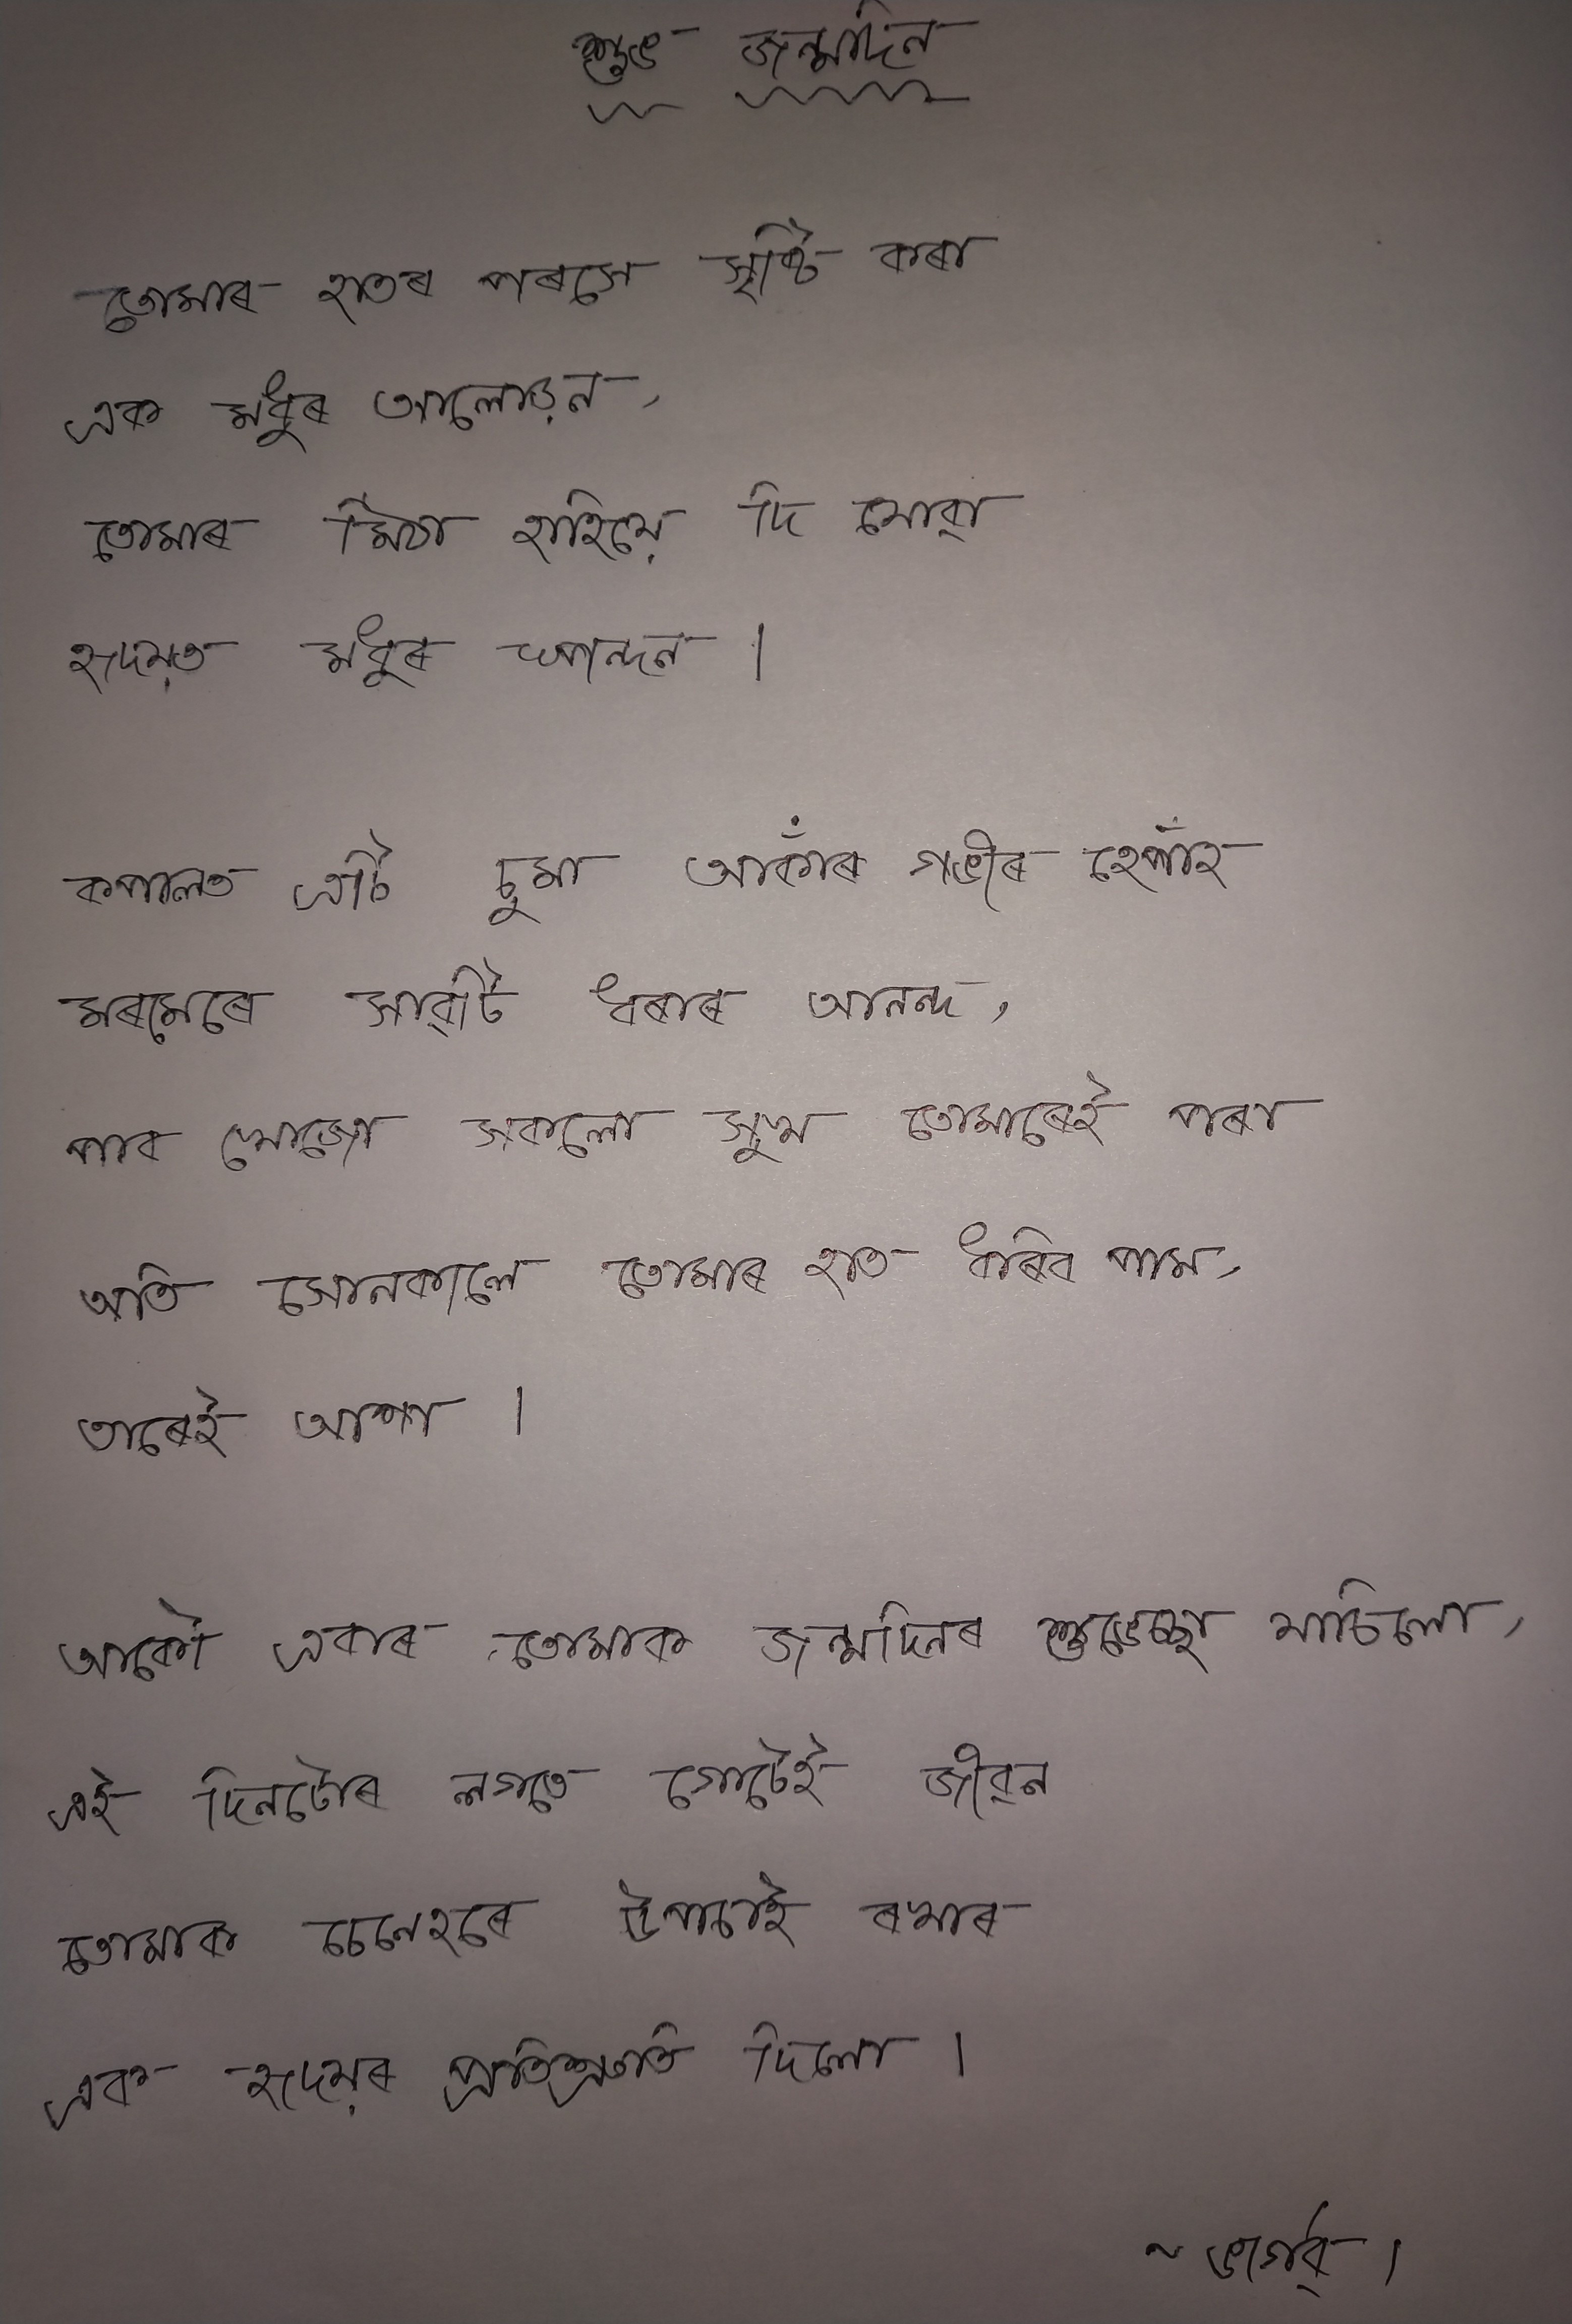 শুভ জন্মদিন
তোমাৰ হাতৰ পৰসে সৃষ্টি কৰা
এক মধুৰ আলোড়ন,
তোমাৰ মিঠা হাঁহিয়ে দি যোৱা
হৃদয়ত মধুৰ স্পন্দন ।
কপালত এটি চুমা আকাঁৰ গভীৰ হেপাঁহ
মৰমেৰে সাৱটি ধৰাৰ আনন্দ,
পাব খোজো সকলো সুখ তোমাৰেই পৰা
অতি সোনকালে তোমাৰ হাত ধৰিব পাম,
তাৰেই আশা ।
আকৌ একবাৰ তোমাক জন্মদিনৰ শুভেচ্ছা যাচিলো,
এই দিনটোৰ লগতে গোটেই জীৱন
তোমাক চেনেহৰে উপচাই ৰখাৰ
এক হৃদয়ৰ প্ৰতিশ্ৰুতি দিলো ।
~ ভাৰ্গৱ ।